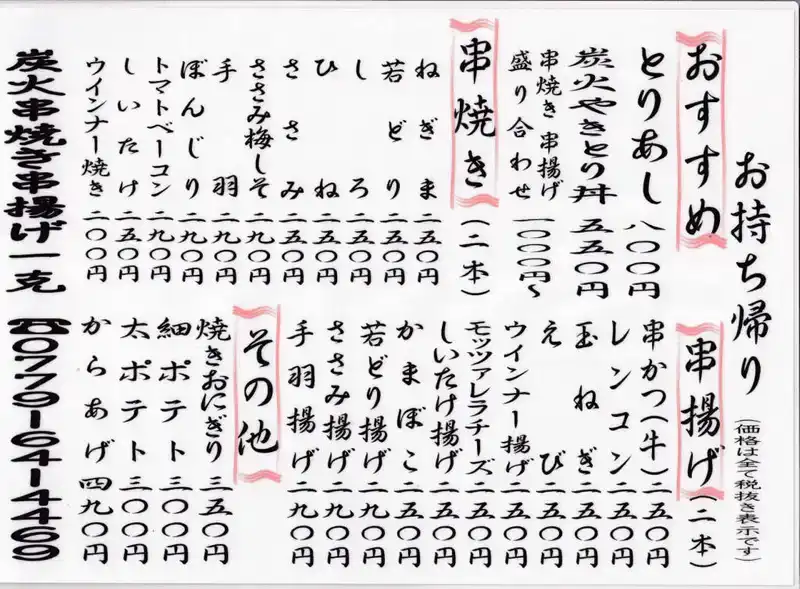 お持ち帰り
(価格は全て税抜き表示です)
おすすめ
とりあし 八〇〇円
炭火やきとり丼 五五〇円
串焼き 串揚げ
盛り合わせ 一〇〇〇円~
串焼き(二本)
ねぎま 二五〇円
若どり 二五〇円
しろ 二五〇円
ひね 二五〇円
ささみ 二五〇円
ささみ梅しそ 二九〇円
手羽 二九〇円
ぼんじり 二九〇円
トマトベーコン 二九〇円
しいたけ 二五〇円
ウインナー焼き 二〇〇円
串揚げ(二本)
串かつ(牛) 二五〇円
レンコン 二五〇円
玉ねぎ 二五〇円
えび 二五〇円
ウインナー揚げ 二五〇円
モッツァレラチーズ 二五〇円
しいたけ揚げ 二五〇円
かまぼこ 二五〇円
若どり揚げ 二九〇円
ささみ揚げ 二九〇円
手羽揚げ 二九〇円
その他
焼きおにぎり 三五〇円
細ポテト 三〇〇円
太ポテト 三〇〇円
からあげ 四九〇円
炭火串焼き串揚げ一克 ☎0779-64-4469